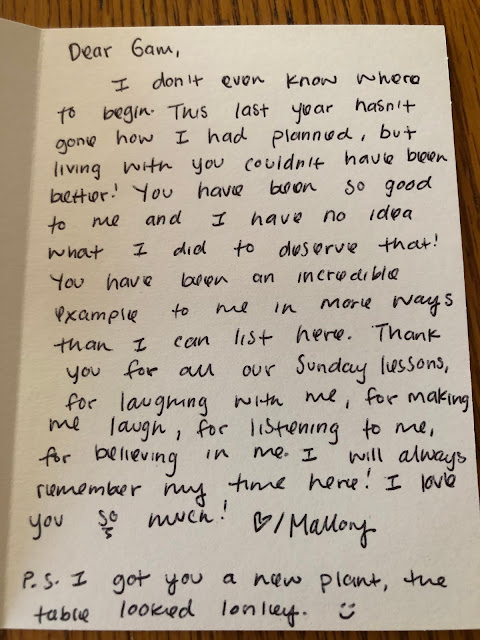 Dear Gam,
I don't even know where
to begin. This last year hasn't
gone how I had planned, but
living with you couldn't have been
better! You have been so good
to me and I have no idea
what I did to deserve that!
You have been an incredible
example to me in more ways
than I can list here. Thank
you for all our Sunday lessons,
for laughing with me, for making
me laugh, for listening to me,
for believing in me. I will always
remember my time here! I love
you so much! ♡/Mallory
P.S. I got you a new plant, the
table looked lonley. :)